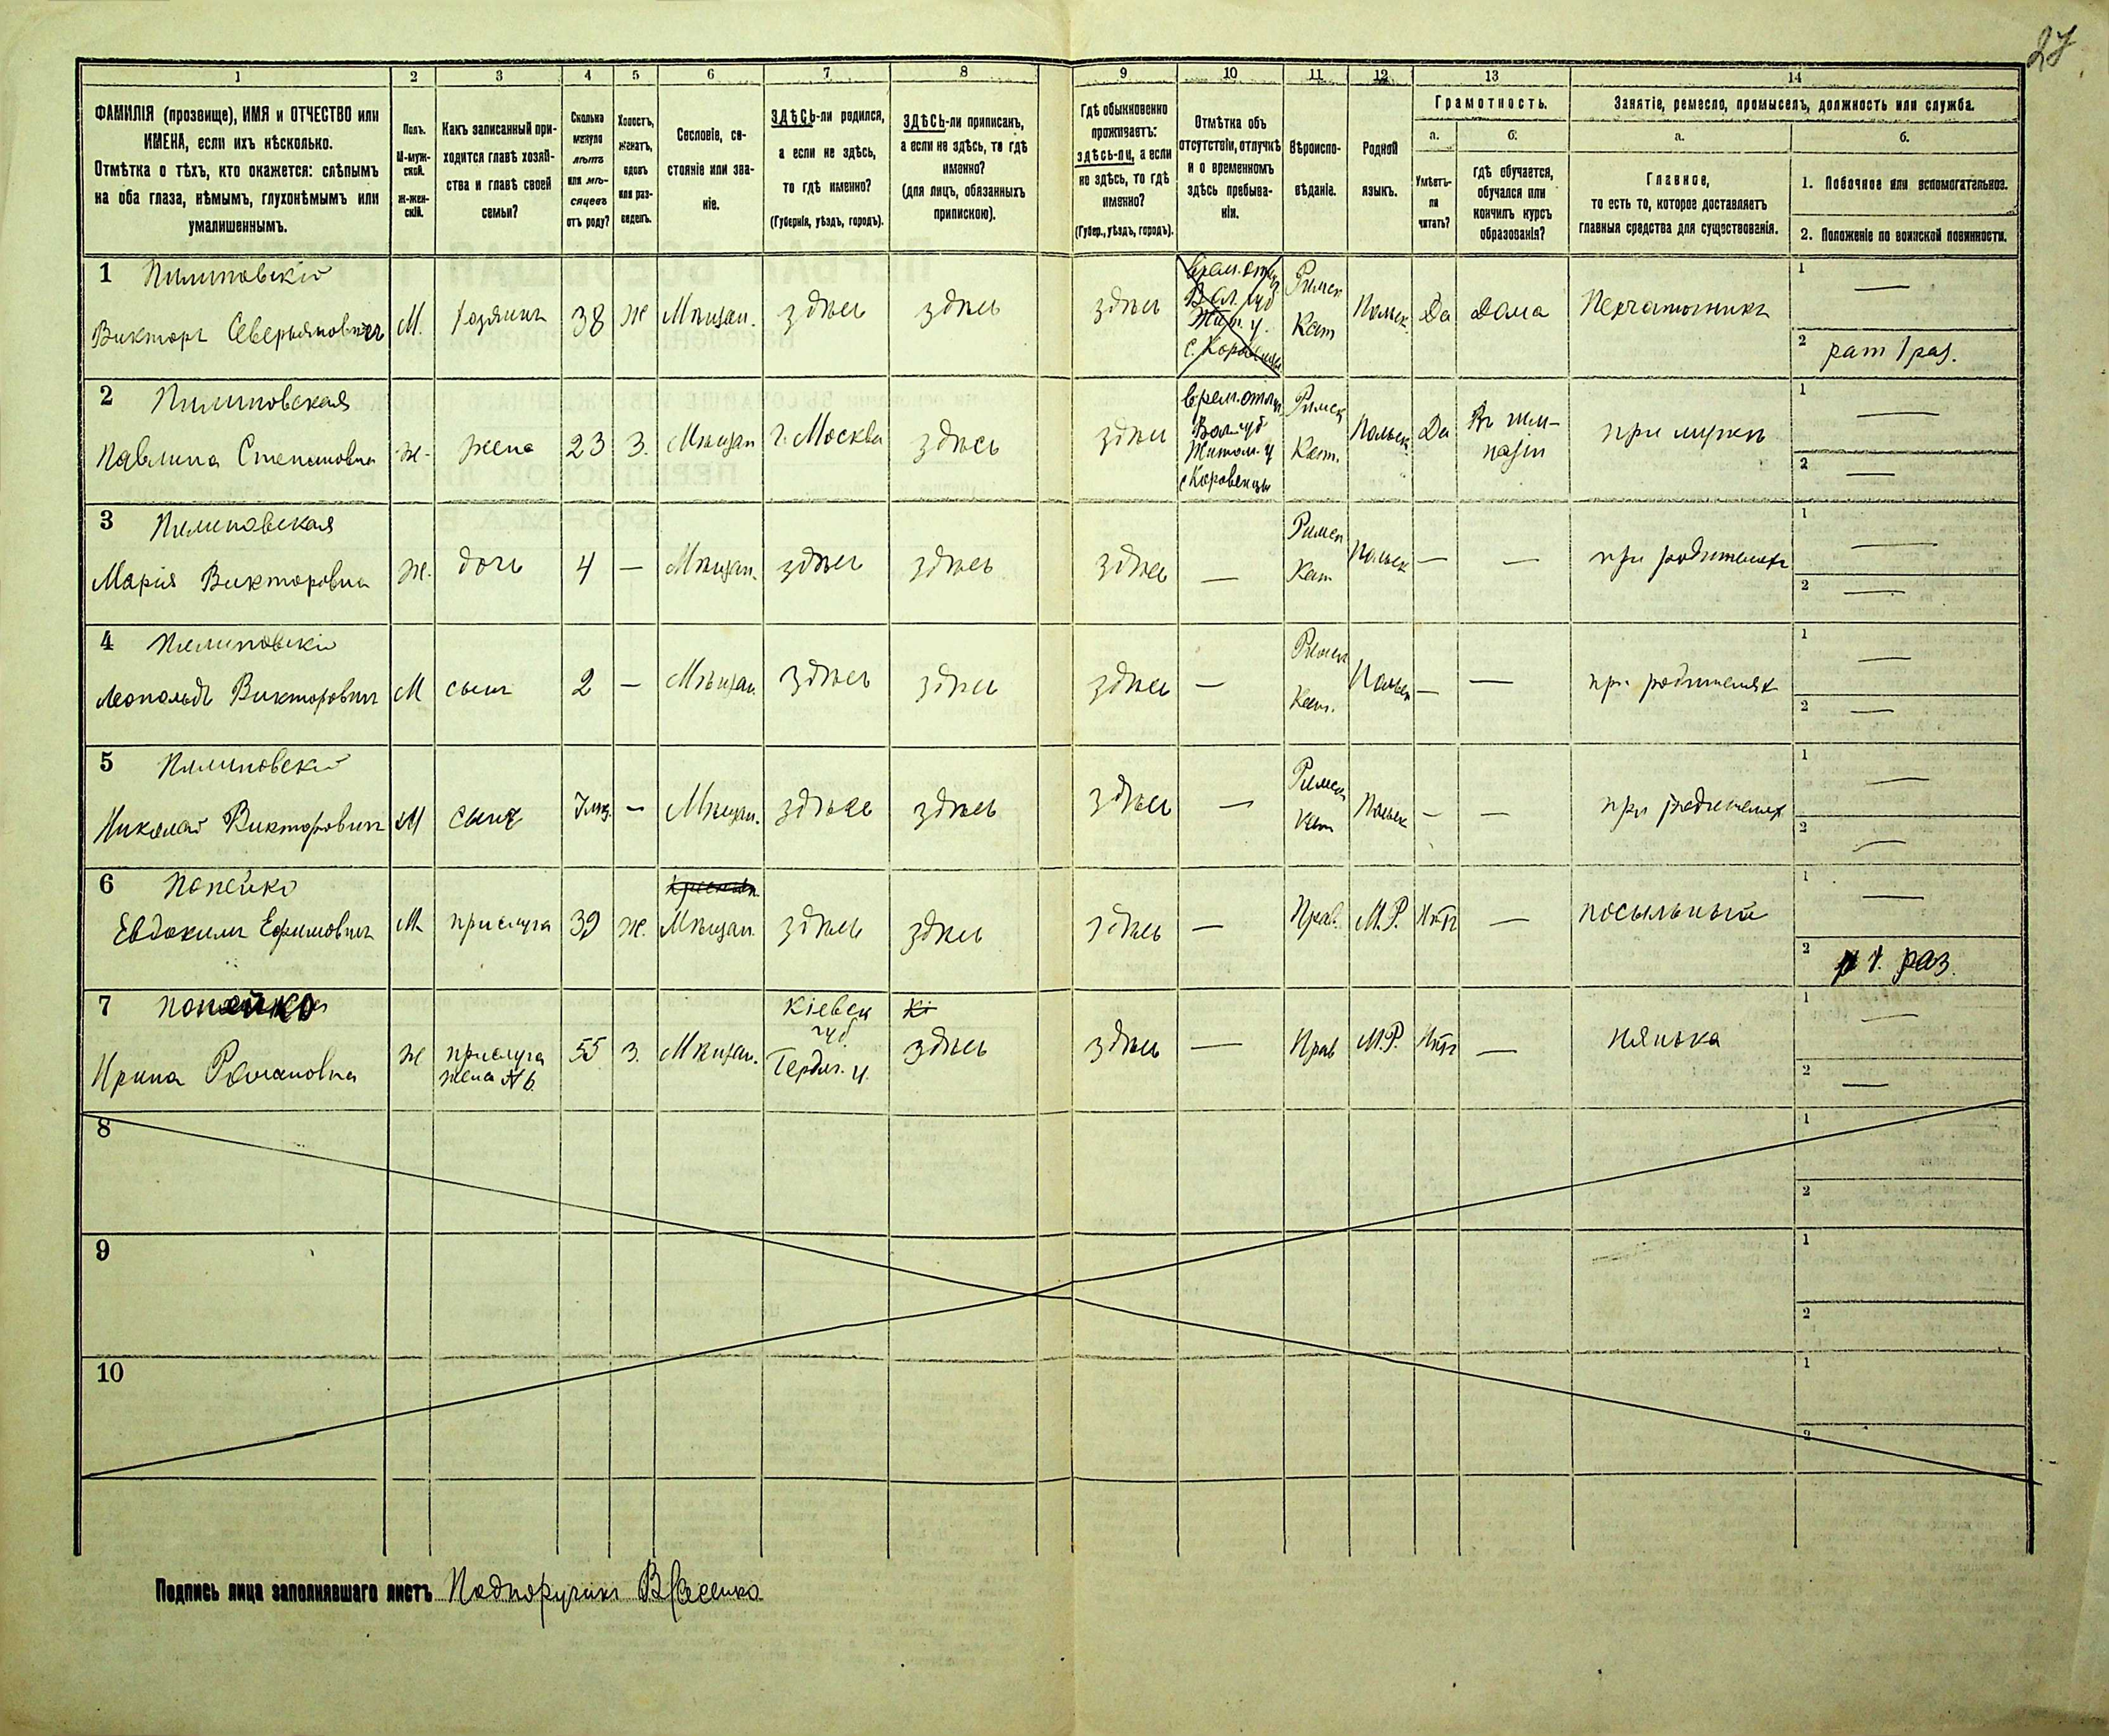 27
1 2 3 4 5 6 7 8 9 10 11 12 13 14
ФАМИЛІЯ (прозвище), ИМЯ и ОТЧЕСТВО или
ИМЕНА, если ихъ нѣсколько.
Отмѣтка о тѣхъ, кто окажется: слѣпымъ
на оба глаза, нѣмымъ, глухонѣмымъ или
умалишеннымъ.
Полъ.
М-муж-
ской.
Ж-жен-
скій.
Какъ записанный при-
ходится главѣ хозяй-
ства и главѣ своей
семьи?
Сколько
минуло
лѣтъ
или мѣ-
сяцевъ
отъ роду?
Холостъ,
женатъ,
вдовъ
или раз-
веденъ.
Сословіе, со-
стояніе или зва-
ніе.
ЗДѢСЬ-ли родился,
а если не здѣсь,
то гдѣ именно?
(Губернія, уѣздъ, городъ).
ЗДѢСЬ-ли приписанъ,
а если не здѣсь, то гдѣ
именно?
(для лицъ, обязанныхъ
припискою).
Гдѣ обыкновенно
проживаетъ:
здѣсь-ли, а если
не здѣсь, то гдѣ
именно?
(Губер., уѣздъ, городъ).
Отмѣтка объ
отсутствіи, отлучкѣ
и о временномъ
здѣсь пребыва-
ніи.
Вѣроиспо-
вѣданіе.
Родной
языкъ.
Грамотность.
а.
Умѣетъ-
ли
читать?
б.
гдѣ обучается,
обучался или
кончилъ курсъ
образованія?
Занятіе, ремесло, промыселъ, должность или служба.
а.
Главное,
то есть то, которое доставляетъ
главныя средства для существованія.
б.
1. Побочное или вспомогательное.
2. Положеніе по воинской повинности.
1 Пилиповскій
Викторъ Северьяновичъ М. хозяинъ 38 Ж Мѣщан. здѣсь здѣсь здѣсь
Врем. отл.
Вол. губ
Жит. у.
с. Коровинцы
Римск
Кат
Польск Да дома Печатникъ
1 —
2 рат 1 раз.
2 Пилиповская
Павлина Степановна Ж. жена 23 З. Мѣщан г. Москва здѣсь здѣсь
врем. отлуч
Вол губ
Житом. у
с Коровинцы
Римск
Кат.
Польск Да Въ гим-
назіи
при мужѣ
1 —
2 —
3 Пилиповская
Марія Викторовна Ж. дочь 4 — Мѣщан. здѣсь здѣсь здѣсь —
Римск
Кат
Польск — — при родителях
1 —
2 —
4 Пилиповскій
Леопольдъ Викторович М сынъ 2 — Мѣщан. здѣсь здѣсь здѣсь —
Римск
Кат.
Польск — — при родителях
1 —
2 —
5 Пилиповскій
Николай Викторович М сынъ 7 мѣ. — Мѣщан. здѣсь здѣсь здѣсь —
Римск
Кат
Польск — — при родителях
1 —
2 —
6 Попейко
Евдокимъ Ефимович М прислуга 39 Ж. Мѣщан. здѣсь здѣсь здѣсь — Прав. М.Р. Нѣтъ — посыльный
1 —
2 р 1. раз.
7 Попейко
Ирина Романовна Ж прислуга
жена № 6.
55 З. Мѣщан.
Кіевск
губ
Бердич. у.
Кі
здѣсь здѣсь — Прав М.Р. Нѣтъ — нянька
1 —
2 —
8 1
2
9 1
2
10 1
2
Подпись лица заполнявшаго листъ Подпоручикъ